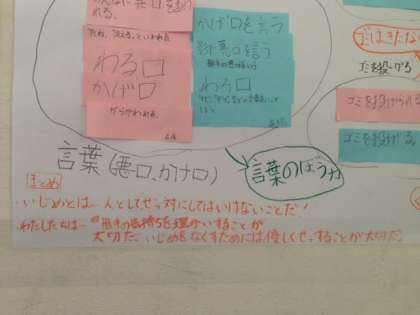 かげ口を言う
影で悪口を言う
わる口
かげ口
からかわれる
わる口
ゴミを投げる
ゴミを投げられる
ゴミを投げる
言葉(悪口、かげ口)
言葉のぼう力
まとめ
いじめとは…人としてぜっ対にしてはいけないことだ!
わたしたちは…相手の気持ちを理かいすることが
大切だ。いじめをなくすためには優しくせっすることが大切だ。